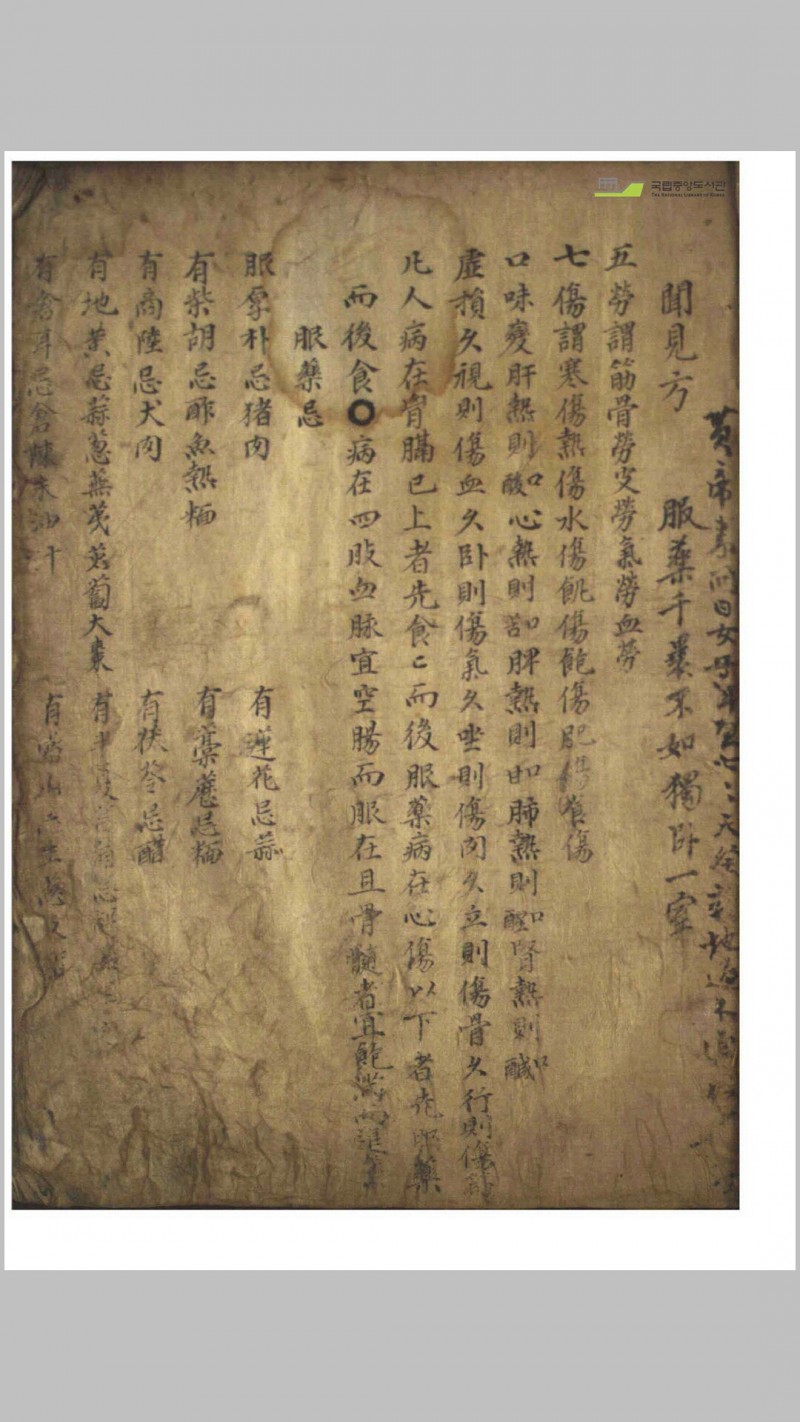 국립중앙도서관
THE NATIONAL LIBRARY OF KOREA
黃帝素問曰女子
天 地 不
聞見方 服藥千藥不如獨卧一室
五勞謂筋骨勞 勞氣勞血勞
七傷謂寒傷熱傷水傷飢傷飽傷肥傷 傷
口味變肝熱則口酸心熱則口苦脾熱則口甘肺熱則口 腎熱則口醎
虛損久視則傷血久卧則傷氣久坐則傷肉久立則傷骨久行則傷
凡人病在胷膈已上者先食〻而後服藥病在心傷以下者先服藥
而後食〇病在四肢血脉宜空腸而服在且骨髓者宜飽滿而
服藥忌
服厚朴忌猪肉 有蓮花忌蒜
有柴胡忌酢魚熱糆 有藁 忌糆
有商陸忌犬肉 有茯苓忌醋
有地黃忌蒜葱蕪 萄大棗 有半夏
有 耳忌倉 米油 有